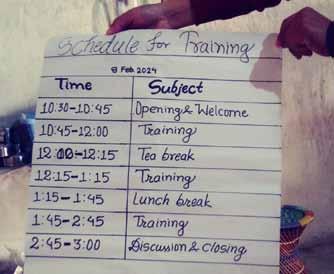 Schedule for Training
8 Feb 2024
Time Subject
10:30-10:45 Opening & Welcome
10:45-12:00 Training
12:00-12:15 Tea break
12:15-1:15 Training
1:15-1:45 Lunch break
1:45-2:45 Training
2:45-3:00 Discussion & Closing